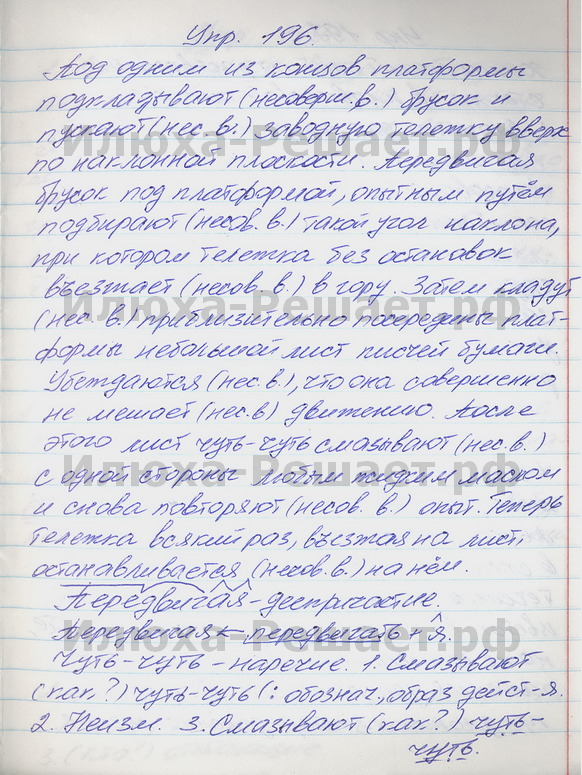 Упр. 196.
Под одним из концов платформы
подкладывают (несоверш. в.) брусок и
пускают (нес. в.) заводную тележку вверх
по наклонной плоскости. Передвигая
брусок под платформой, опытным путём
подбирают (несов. в.) такой угол наклона,
при котором тележка без остановок
въезжает (несов. в.) в гору. Затем кладут
(нес. в.) приблизительно посередине плат-
формы небольшой лист писчей бумаги.
Убеждаются (нес. в.), что она совершенно
не мешает (нес. в) движению. После
этого лист чуть-чуть смазывают (нес. в.)
с одной стороны любым жидким маслом
и снова повторяют (несов. в.) опыт. Теперь
тележка всякий раз, въезжая на лист,
останавливается (несов. в.) на нём.
Передвигая - деепричастие.
Передвигая ← передвигать + я.
Чуть-чуть - наречие. 1. Смазывают
(как?) чуть-чуть (: обознач. образ дейст-я.
2. Неизм. 3. Смазывают (как?) чуть-
чуть.
Илюха-Решает.рф
Илюха-Решает.рф
Илюха-Решает.рф
Илюха-Решает.рф